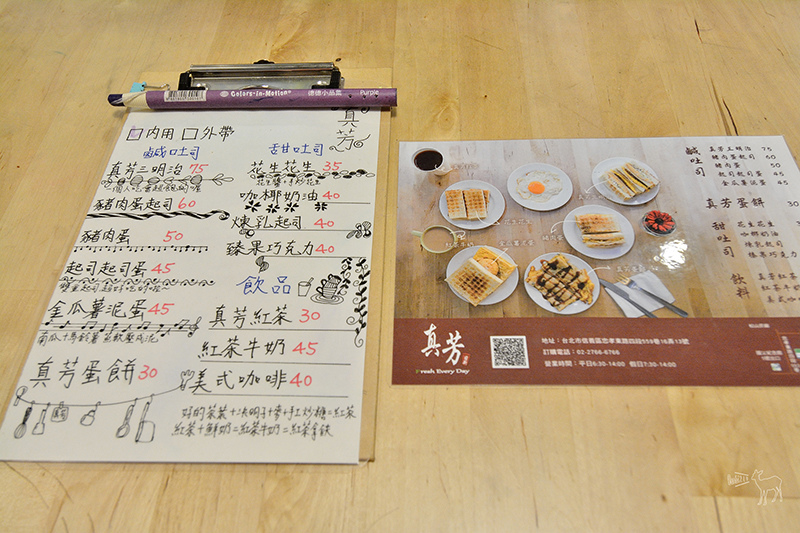 Colors-in-Motion 德德小品集 Purple
真芳
內用 外帶
鹹吐司
真芳三明治 75
豬肉蛋起司 60
豬肉蛋 50
起司起司蛋 45
金瓜薯泥蛋 45
真芳蛋餅 30
甜甜吐司
花生花生 35
花生醬+手炒花生
咖椰奶油 40
煉乳起司 40
臻果巧克力 40
飲品
真芳紅茶 30
紅茶牛奶 45
美式咖啡 40
紅茶+鮮奶=紅茶牛奶=紅茶拿鐵
鹹吐司
真芳三明治 75
豬肉蛋起司 60
豬肉蛋 50
起司起司蛋 45
金瓜薯泥蛋 45
真芳蛋餅 30
甜吐司
花生花生
咖椰奶油
煉乳起司
臻果巧克力
飲料
真芳紅茶
紅茶牛奶
美式咖
真芳
Fresh Every Day
地址:台北市信義區忠孝東路四段559巷16弄13號
訂購電話:02-2766-6766
營業時間:平日6:30-14:00 假日7:30-14:00